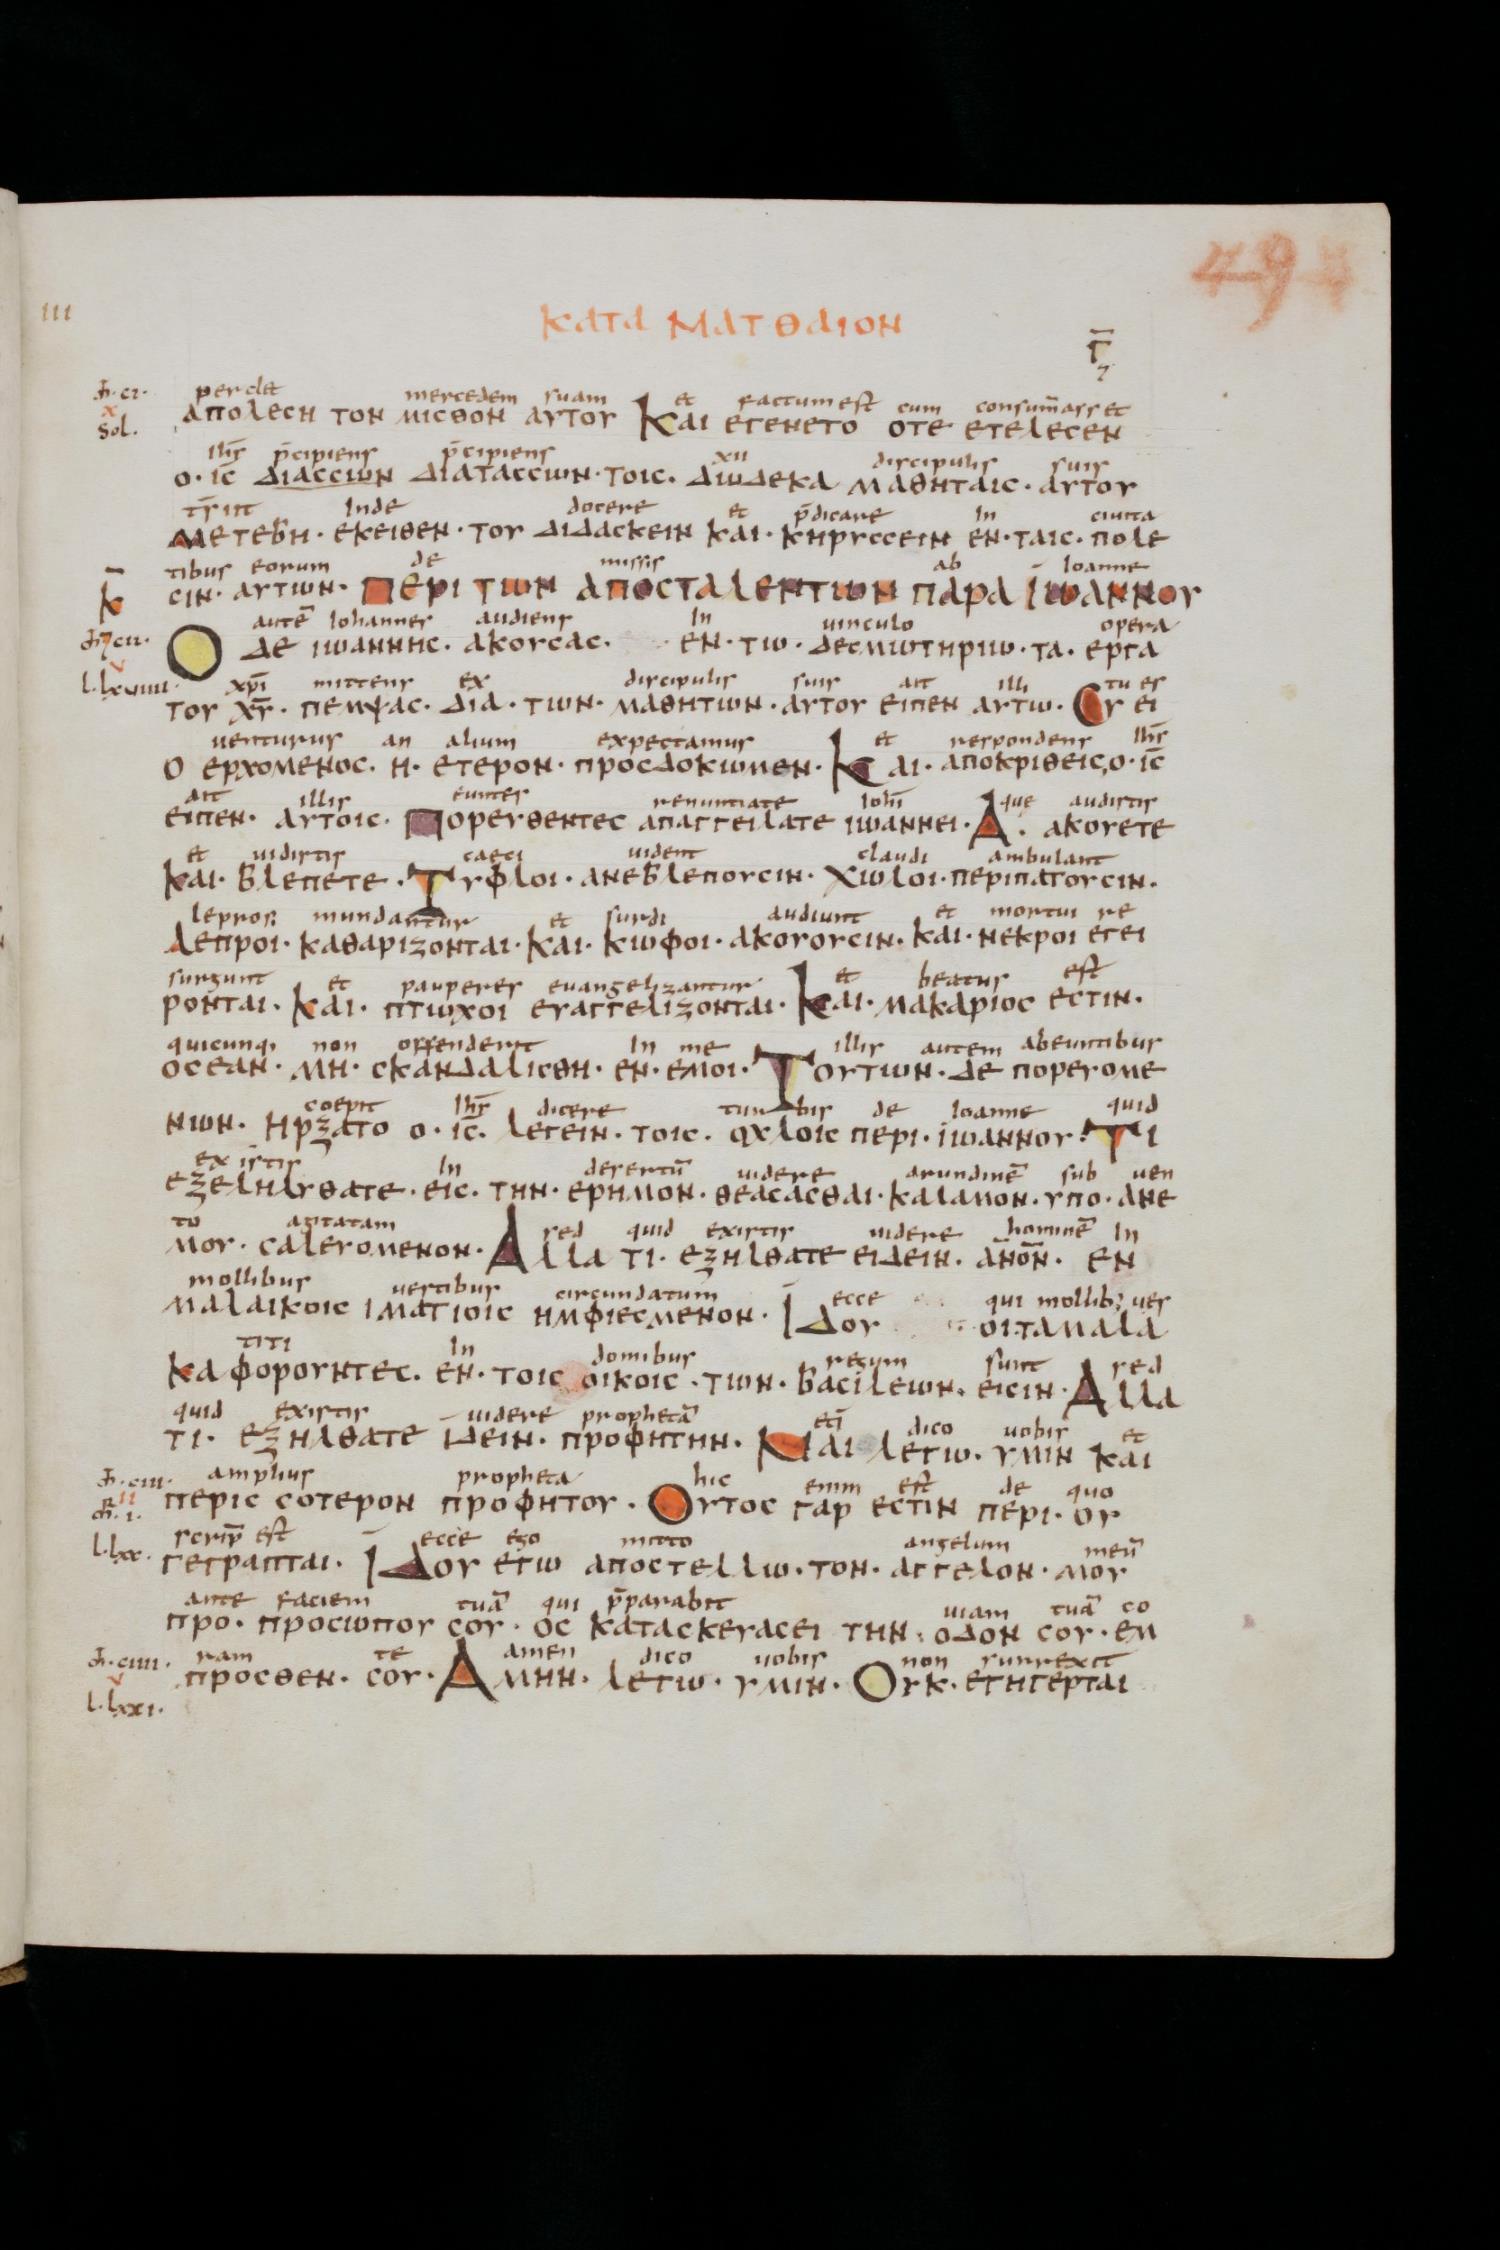 494
III
ΚΑΤΑ ΜΑΤΘΑΙΟΝ
Γ̅
perdet mercedem suam et factum est cum consum̄asset
ΑΠΟΛΕСΗ ΤΟΝ ΜΙСΘΟΝ ΑΥΤΟΥ ΚΑΙ ΕΓΕΝΕΤΟ ΟΤΕ ΕΤΕΛΕСΕΝ
sol.
ih̄s p̄cipiens p̄cipiens xii discipulis suis
Ο· ΙС̅ ΔΙΑССΩΝ ΔΙΑΤΑССΩΝ· ΤΟΙС· ΔΩΔΕΚΑ ΜΑΘΗΤΑΙС· ΑΥΤΟΥ
inde docere et p̄dicare in ciuita
ΜΕΤΕΒΗ· ΕΚΕΙΘΕΝ· ΤΟΥ ΔΙΔΑСΚΕΙΝ ΚΑΙ· ΚΗΡΥССΕΙΝ ΕΝ· ΤΑΙС· ΠΟΛΕ
tibus eorum de missis ab ioanne
СΙΝ· ΑΥΤΩΝ· ΠΕΡΙ ΤΩΝ ΑΠΟСΤΑΛΕΝΤΩΝ ΠΑΡΑ ΙΩΑΝΝΟΥ
autē iohannes audiens in uinculo opera
Ο ΔΕ ΙΩΑΝΝΗС· ΑΚΟΥСΑС· ΕΝ· ΤΩ· ΔΕСΜΩΤΗΡΙΩ· ΤΑ· ΕΡΓΑ
l·lxuiiii·
xp̄i mittens ex discipulis suis ait illi tu es
ΤΟΥ ΧΥ̅· ΠΕΜΨΑС· ΔΙΑ· ΤΩΝ· ΜΑΘΗΤΩΝ· ΑΥΤΟΥ ΕΙΠΕΝ ΑΥΤΩ· СΥ ΕΙ
uenturus an alium expectamus et respondens ih̄s
Ο ΕΡΧΟΜΕΝΟС· Η· ΕΤΕΡΟΝ· ΠΡΟСΔΟΚΩΜΕΝ· ΚΑΙ· ΑΠΟΚΡΙΘΕΙС,Ο· ΙС̅
ait illis euntes renuntiate ioh̄i que audistis
ΕΙΠΕΝ· ΑΥΤΟΙС· ΠΟΡΕΥΘΕΝΤΕС ΑΠΑΓΓΕΙΛΑΤΕ ΙΩΑΝΝΕΙ· Α· ΑΚΟΥΕΤΕ
et uidistis caeci uident claudi ambulant
ΚΑΙ· ΒΛΕΠΕΤΕ· ΤΥΦΛΟΙ· ΑΝΕΒΛΕΠΟΥСΙΝ· ΧΩΛΟΙ· ΠΕΡΙΠΑΤΟΥСΙΝ·
leprosi mundantur et surdi audiunt et mortui re
ΛΕΠΡΟΙ· ΚΑΘΑΡΙΖΟΝΤΑΙ· ΚΑΙ· ΚΩΦΟΙ· ΑΚΟΥΟΥСΙΝ· ΚΑΙ· ΝΕΚΡΟΙ ΕΓΕΙ
surgunt et pauperes euangelizantur et beatus est
ΡΟΝΤΑΙ· ΚΑΙ· ΠΤΩΧΟΙ ΕΥΑΓΓΕΛΙΖΟΝΤΑΙ· ΚΑΙ· ΜΑΚΑΡΙΟС ΕСΤΙΝ·
quicunq; non offenderit in me illis autem abeuntibus
ΟСΕΑΝ· ΜΗ· СΚΑΝΔΑΛΙСΘΗ· ΕΝ· ΕΜΟΙ· ΤΟΥΤΩΝ· ΔΕ ΠΟΡΕΥΟΜΕ
coepit ih̄s dicere turbis de ioanne quid
ΝΩΝ· ΗΡΞΑΤΟ Ο· ΙС̅· ΛΕΓΕΙΝ· ΤΟΙС· ΟΧΛΟΙС ΠΕΡΙ· ΙΩΑΝΝΟΥ· ΤΙ
existis in desertū uidere arundinē sub uen
ΕΞΕΛΗΛΥΘΑΤΕ· ΕΙС· ΤΗΝ· ΕΡΗΜΟΝ· ΘΕΑСΑСΘΑΙ· ΚΑΛΑΜΟΝ· ΥΠΟ· ΑΝΕ
to agitatam sed quid existis uidere hominē in
ΜΟΥ· СΑΛΕΥΟΜΕΝΟΝ· ΑΛΛΑ ΤΙ· ΕΞΗΛΘΑΤΕ ΕΙΔΕΙΝ· ΑΝΟ̅Ν· ΕΝ
mollibus uestibus circundatum ecce qui mollib; ues
ΜΑΛΑΙΚΟΙС ΙΜΑΤΙΟΙС ΗΜΦΙΕСΜΕΝΟΝ· ΙΔΟΥ ΟΙ·ΤΑΜΑΛΑ
titi in domibus regum sunt sed
ΚΑ ΦΟΡΟΥΝΤΕС· ΕΝ· ΤΟΙС ΟΙΚΟΙС· ΤΩΝ· ΒΑСΙΛΕΩΝ· ΕΙСΙΝ· ΑΛΛΑ
quid existis uidere prophetā etī dico uobis et
ΤΙ· ΕΞΗΛΘΑΤΕ ΙΔΕΙΝ· ΠΡΟΦΗΤΗΝ· ΝΑΙ ΛΕΓΩ· ΥΜΙΝ ΚΑΙ
amplius propheta hic enim est de quo
ΠΕΡΙС СΟΤΕΡΟΝ ΠΡΟΦΗΤΟΥ· ΟΥΤΟС ΓΑΡ ΕСΤΙΝ ΠΕΡΙ· ΟΥ
l·lxx·
scrip̄ est ecce ego mitto angelum meū
ΓΕΓΡΑΠΤΑΙ· ΙΔΟΥ ΕΓΩ ΑΠΟСΤΕΛΛΩ· ΤΟΝ· ΑΓΓΕΛΟΝ· ΜΟΥ
ante faciem tuā qui p̄parabit uiam tuā co
ΠΡΟ· ΠΡΟСΩΠΟΥ СΟΥ· ΟС ΚΑΤΑСΚΕΥΑСΕΙ ΤΗΝ· ΟΔΟΝ СΟΥ· ΕΜ
ram te amen dico uobis non surrexit
ΠΡΟСΘΕΝ· СΟΥ· ΑΜΗΝ· ΛΕΓΩ· ΥΜΙΝ· ΟΥΚ· ΕΓΗΓΕΡΤΑΙ
l·lxxi·